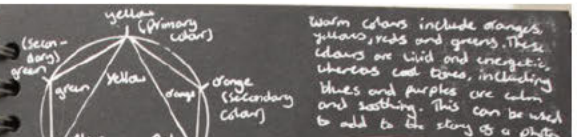 yellow
(primary
colour)
(secon-
dary)
green
green
yellow
orange
orange
(secondary
colour)
Warm colours include oranges,
yellows, reds and greens. These
colours are vivid and energetic,
whereas cool tones, including
blues and purples are calm
and soothing. This can be used
to add to the story of a photo